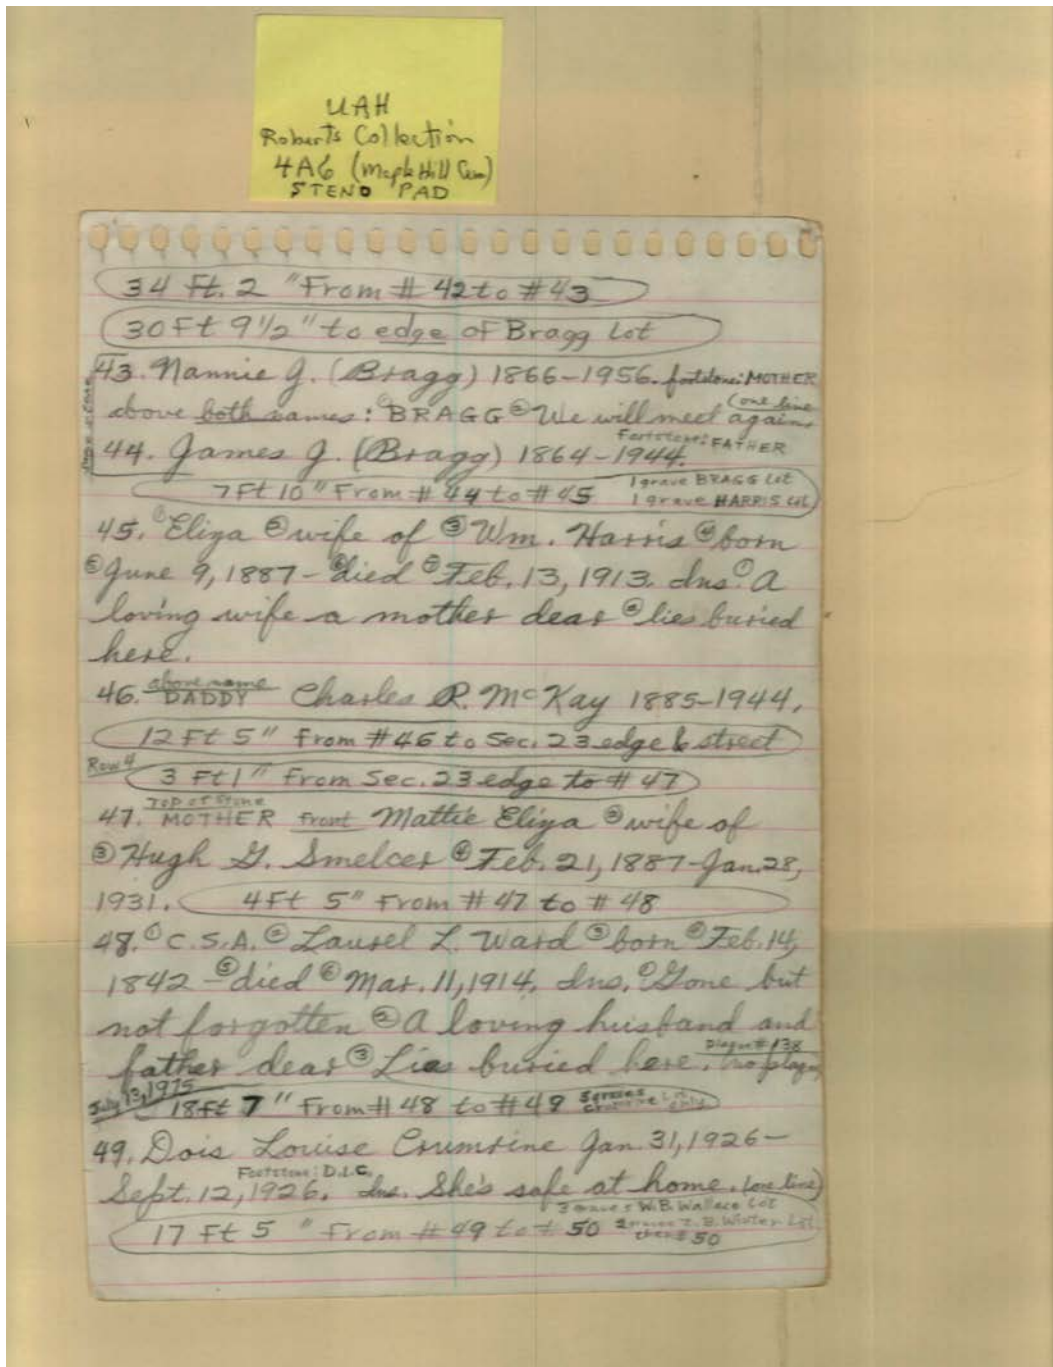 UAH
Roberts Collection
4A6 (Maple Hill Cem)
STENO PAD
34 Ft. 2 " From # 42 to # 43
30 Ft 9 1/2 " to edge of Bragg Lot
43. Nannie J. (Bragg) 1866-1956. footstone: MOTHER
above both names: ① BRAGG ② We will meet again. (one line
Footstone: FATHER
44. James J. (Bragg) 1864-1944.
7 Ft 10 " From # 44 to # 45 1 grave BRAGG Lot
1 grave HARRIS Lot
45. ① Eliza ② wife of ③ Wm. Harris ④ born
⑤ June 9, 1887 - ⑥ died ⑦ Feb. 13, 1913. Ins. ① A
loving wife a mother dear ② lies buried
here.
46. above name DADDY Charles R. McKay 1885-1944.
12 Ft 5 " From # 46 to Sec. 23 edge & street
Row 4
3 Ft 1 " From Sec. 23 edge to # 47
Top of Stone
47. MOTHER Front Mattie Eliza ② wife of
③ Hugh G. Smelcer ④ Feb. 21, 1887-Jan. 28,
1931. 4 Ft 5" From # 47 to # 48
48. ① C.S.A. ② Laurel L. Ward ③ born ④ Feb. 14,
1842 - ⑤ died ⑥ Mar. 11, 1914. Ins. ① Gone but
not forgotten ② A loving husband and
father dear ③ Lies buried here. Plaque # 138
(no plaque)
July 13, 1975
18 Ft 7 " From # 48 to # 49 5 graves
Crumrine Lot only
49. Dois Louise Crumrine Jan. 31, 1926-
Footstone: D.L.C.
Sept. 12, 1926. Ins. She's safe at home. (one line)
3 graves W.B. Wallace Lot
17 Ft 5 " From # 49 to # 50 2 graves Z.B. Winter Lot
then # 50